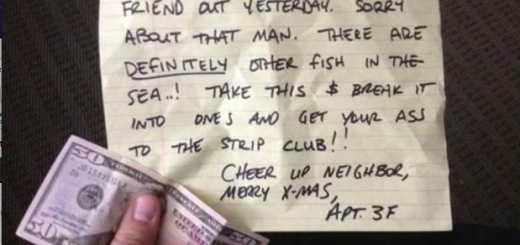 FRIEND OUT YESTERDAY. SORRY
ABOUT THAT MAN. THERE ARE
DEFINITELY OTHER FISH IN THE
SEA..! TAKE THIS $ BREAK IT
INTO ONES AND GET YOUR ASS
TO THE STRIP CLUB!!
CHEER UP NEIGHBOR,
MERRY X-MAS,
APT. 3F
50
50